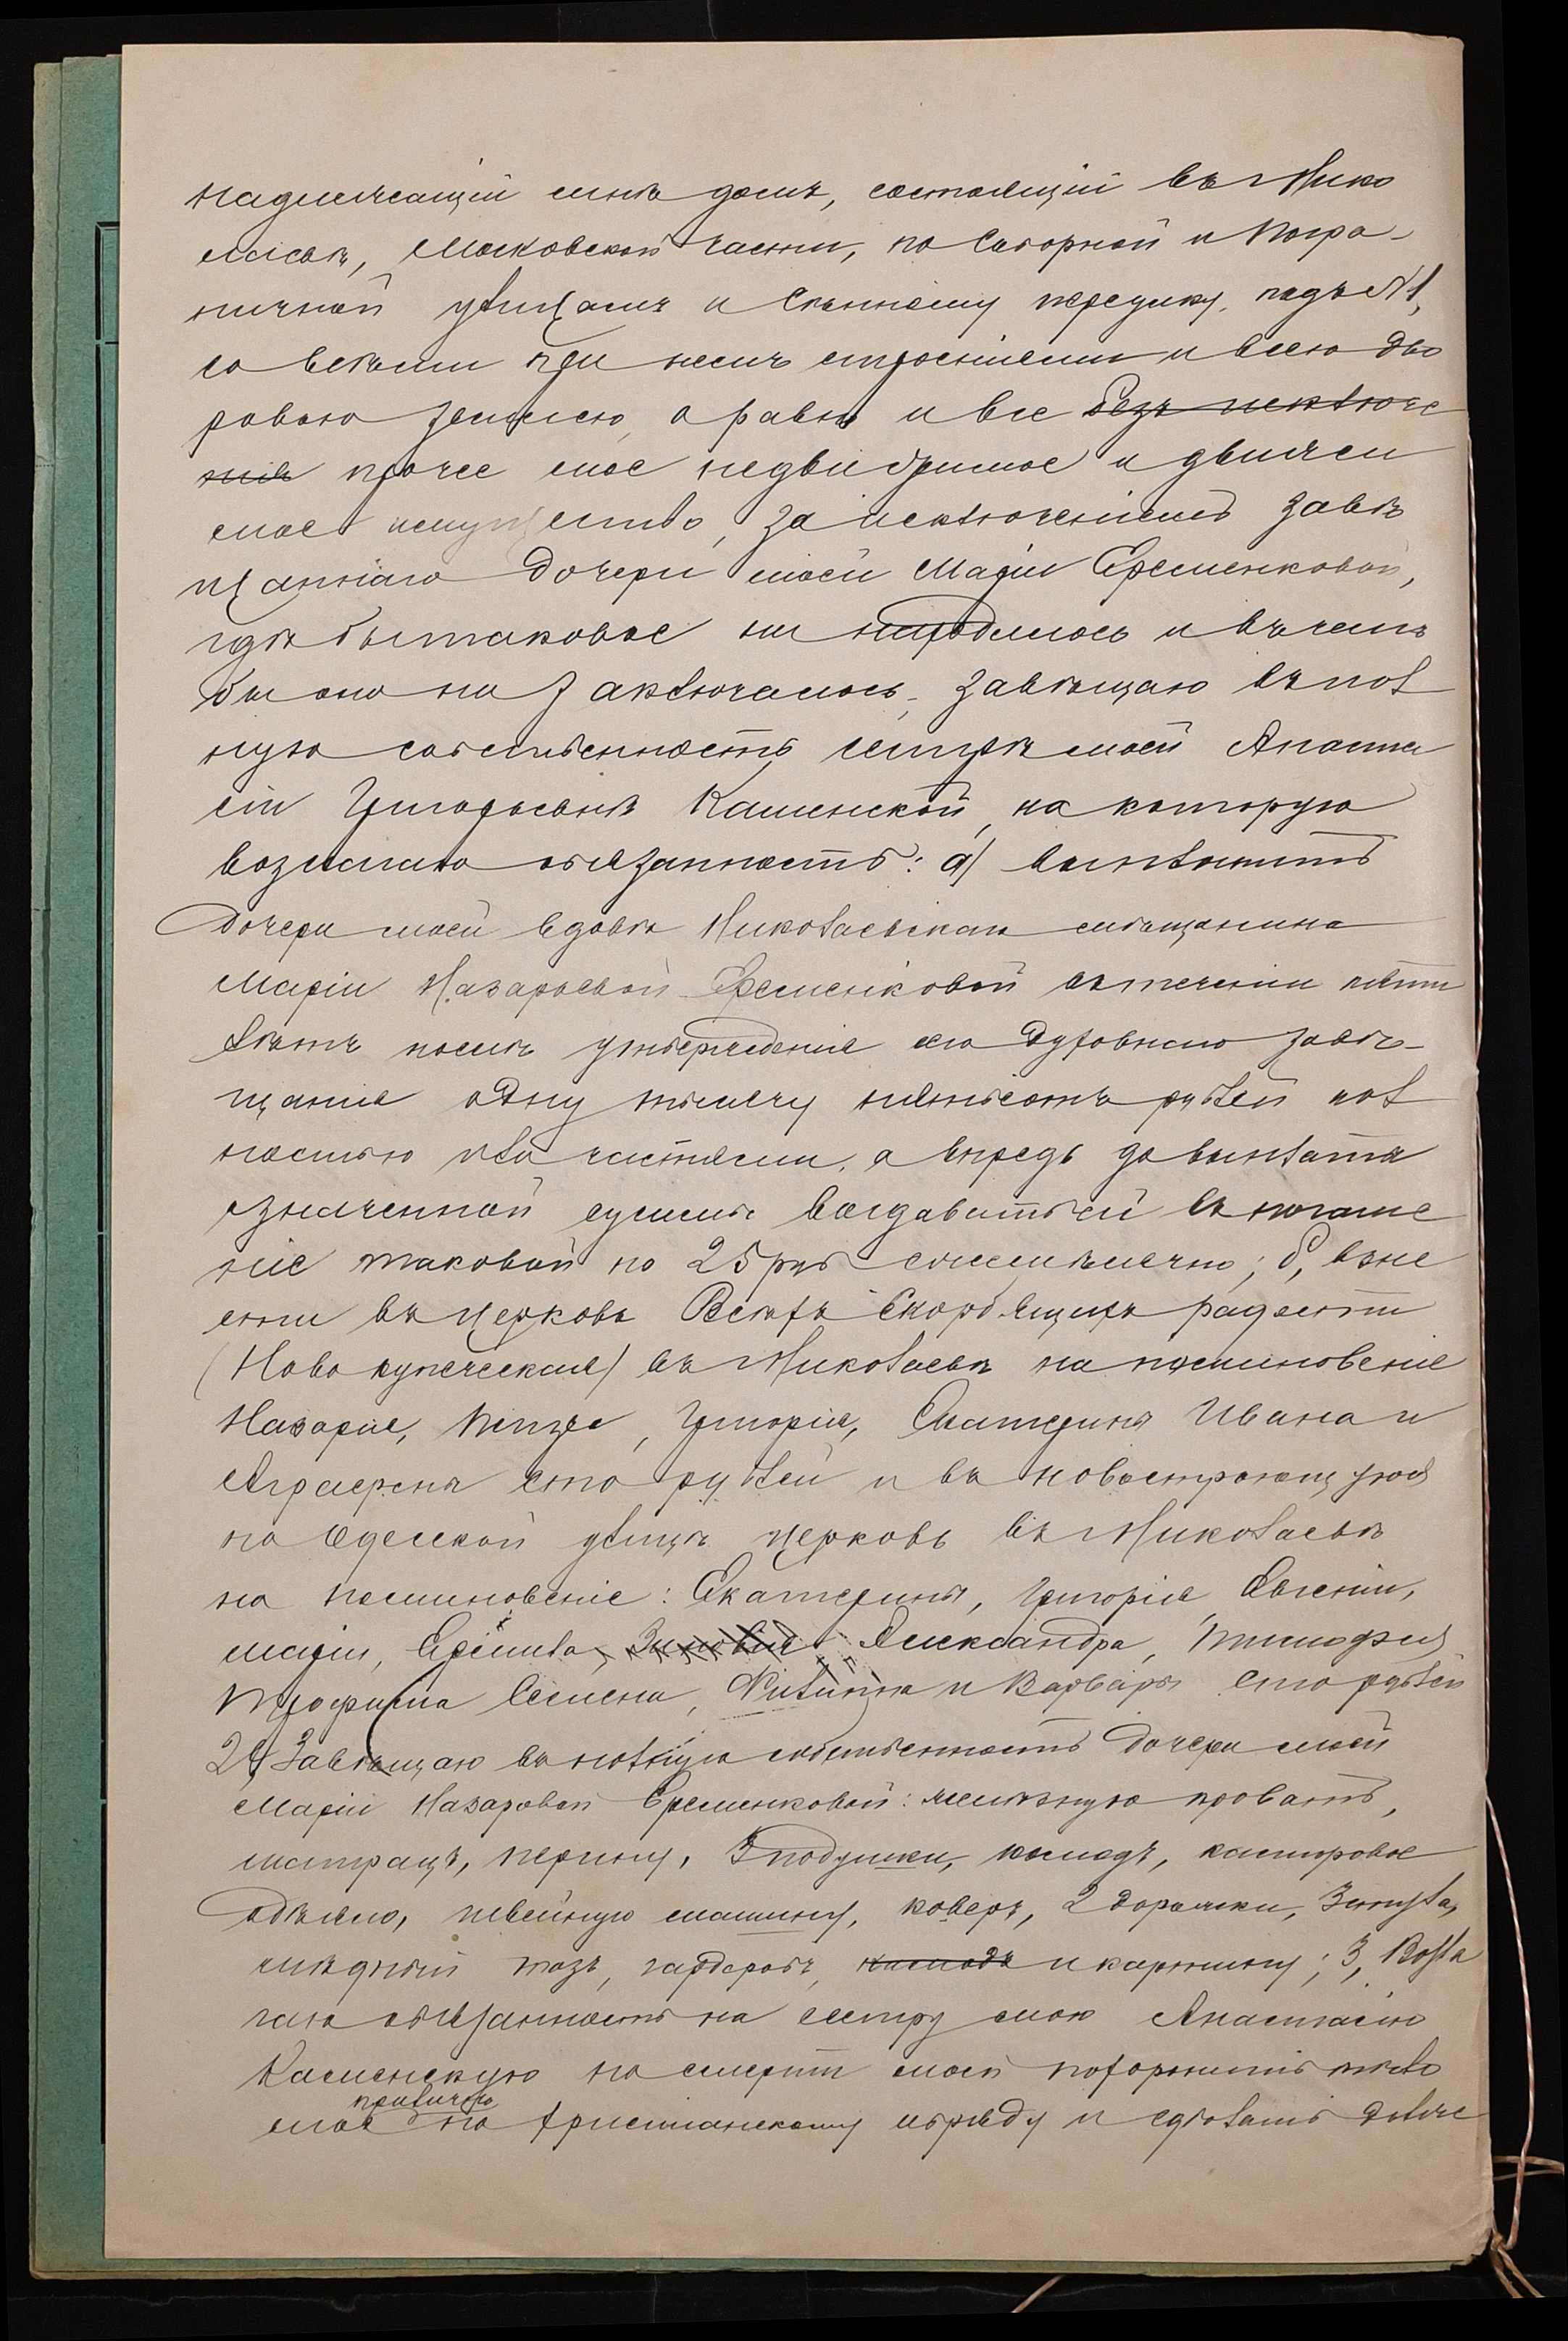 надлежащій мнѣ домъ, состоящій въ Нико
лаевѣ, Московской части, по Соборной и Погра-
ничной улицамъ и Сѣнному переулку, подъ №1,
со всѣми при немъ строеніями и всею дво
ровою землею, а равно и все безъ исключе
нія прочее мое недвижимое и движи
мое имущество, за исключеніемъ завѣ
щаннаго дочери моей Маріи Еременковой,
гдѣ бы таковое ни находилось и въ чемъ
бы оно ни заключалось, завѣщаю въ пол
ную собственность сестрѣ моей Анаста
сіи Григорьевнѣ Каменской, на которую
возлагаю обязанность: а) выплатить
дочери моей вдовѣ Николаевскаго мѣщанина
Маріи Назарьевой Еременковой въ теченіи пяти
лѣтъ послѣ утвержденія сего духовнаго завѣ-
щанія одну тысячу пятьсотъ рублей пол
ностью или частями, а впредь до выплаты
означенной суммы выдавать ей въ погаше
ніе таковой по 25 руб ежемѣсячно; б, взне
сти въ церковь Всѣхъ Скорбящихъ радости
(Ново купеческая) въ Николаевѣ на поминовеніе
Назарія, Петра, Григорія, Екатерины Ивана и
Аграфены сто рублей и въ новостроющуюся
на Одесской улицѣ церковь въ Николаевѣ
на поминовеніе: Екатерины, Григорія, Евгеніи,
Маріи, Александра, Тимофея,
Трофима Семена, Филиппа и Варвары сто рублей
2, Завѣщаю въ полную собственность дочери моей
Маріи Назаровой Еременковой: желѣзную кровать,
матрацъ, перину, 3 подушки, комодъ, касторовое
одѣяло, швейную машину, коверъ, 2 дорожки, 3 стула,
мѣдный тазъ, гардеробъ, комодъ и картину; 3, Возла
гаю обязанность на сестру мою Анастасію
Каменскую по смерти моей похоронить тѣло
прилично
мое по христіанскому обряду и сдѣлать